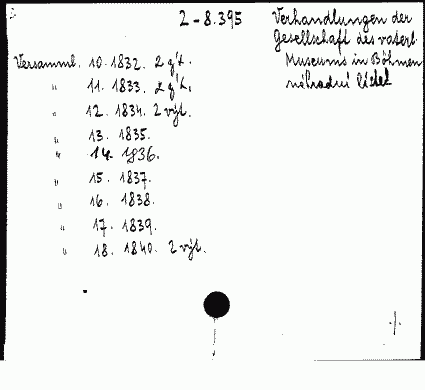 2-8.395
Verhandlungen der
Gesellschaft des vaterl.
Museums in Böhmen
náhradní lístek
Versamml. 10. 1832. 2 výt.
" 11. 1833. 2 výt.
" 12. 1834. 2 výt.
" 13. 1835.
" 14. 1836.
" 15. 1837.
" 16. 1838.
" 17. 1839.
" 18. 1840. 2 výt.
./.